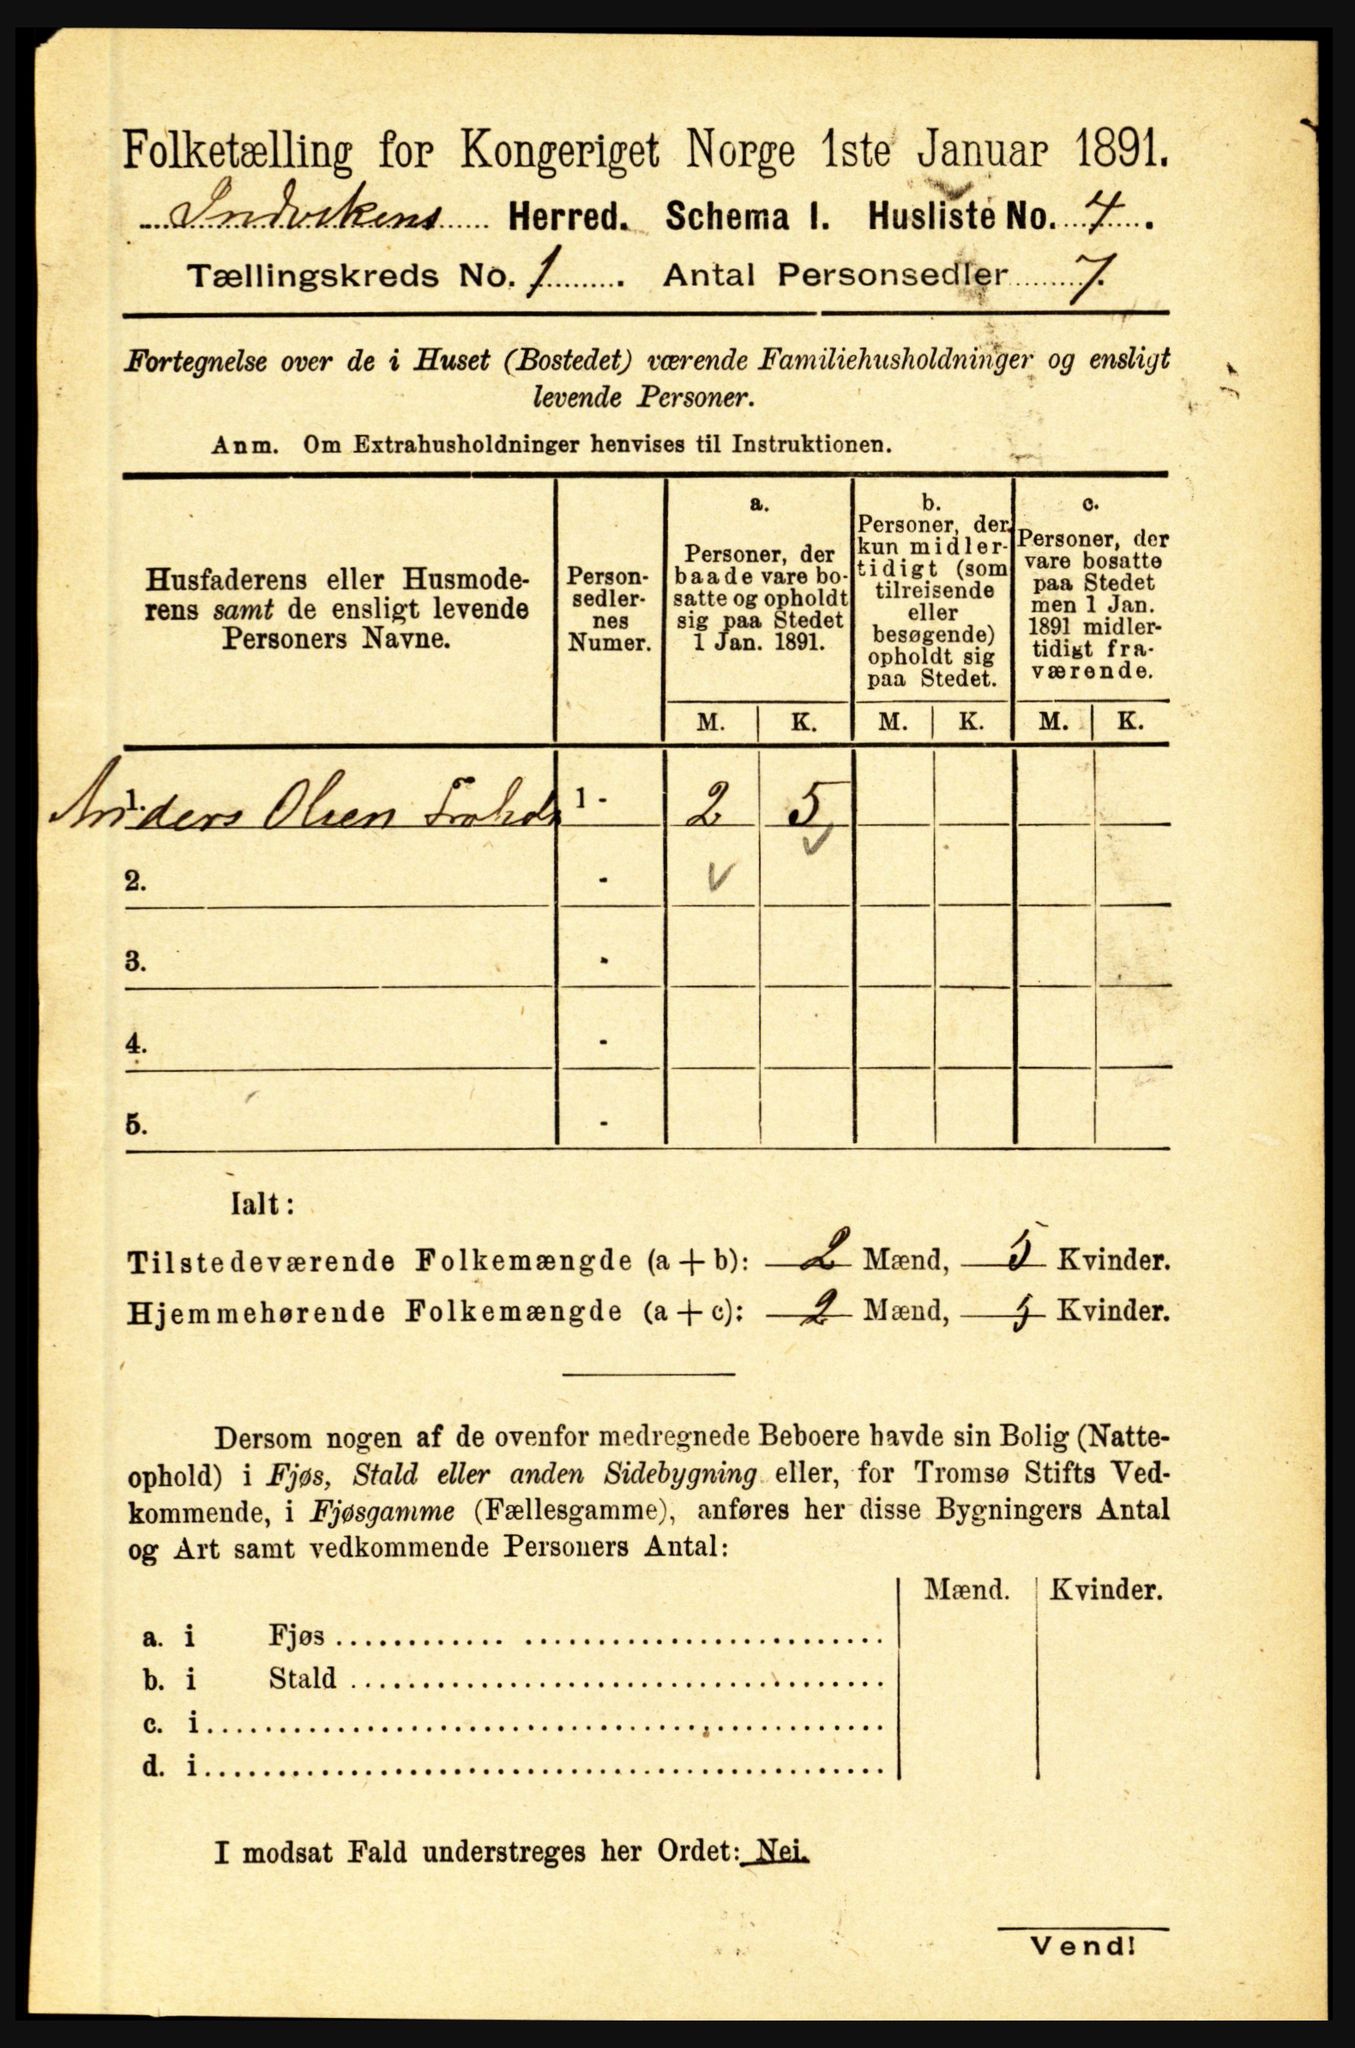 Folketælling for Kongeriget Norge 1ste Januar 1891.
Indvikens Herred. Schema I. Husliste No. 4.
Tællingskreds No. 1. Antal Personsedler 7.
Fortegnelse over de i Huset (Bostedet) værende Familiehusholdninger og ensligt
levende Personer.
Anm. Om Extrahusholdninger henvises til Instruktionen.
Husfaderens eller Husmode-
rens samt de ensligt levende
Personers Navne.
Person-
sedler-
nes
Numer.
a.
Personer, der
baade vare bo-
satte og opholdt
sig paa Stedet
1 Jan. 1891.
b.
Personer, der
kun midler-
tidigt (som
tilreisende
eller
besøgende)
opholdt sig
paa Stedet.
c.
Personer, der
vare bosatte
paa Stedet
men 1 Jan.
1891 midler-
tidigt fra-
værende.
M. K. M. K. M. K.
1. Anders Olsen 1 - 2 5
2. -
3. -
4. -
5. -
Ialt:
Tilstedeværende Folkemængde (a + b): 2 Mænd, 5 Kvinder.
Hjemmehørende Folkemængde (a + c): 2 Mænd, 5 Kvinder.
Dersom nogen af de ovenfor medregnede Beboere havde sin Bolig (Natte-
ophold) i Fjøs, Stald eller anden Sidebygning eller, for Tromsø Stifts Ved-
kommende, i Fjøsgamme (Fællesgamme), anføres her disse Bygningers Antal
og Art samt vedkommende Personers Antal:
Mænd. Kvinder.
a. i Fjøs
b. i Stald
c. i
d. i
I modsat Fald understreges her Ordet: Nei.
Vend!